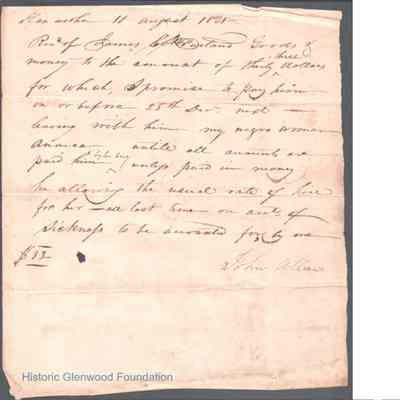 Kanawha 11 august 1821
Recd of James C. McFarland Goods &
money to the amount of thirty three dollars
for which, I promise to pay him
on or before 25th Dec. next —
leaving with him my negro woman
untill all amounts are
paid him unless paid in money
he allowing the usual rate of hire
for her — all lost time on acct of
Sickness to be accounted for, by me
$33
John
Historic Glenwood Foundation